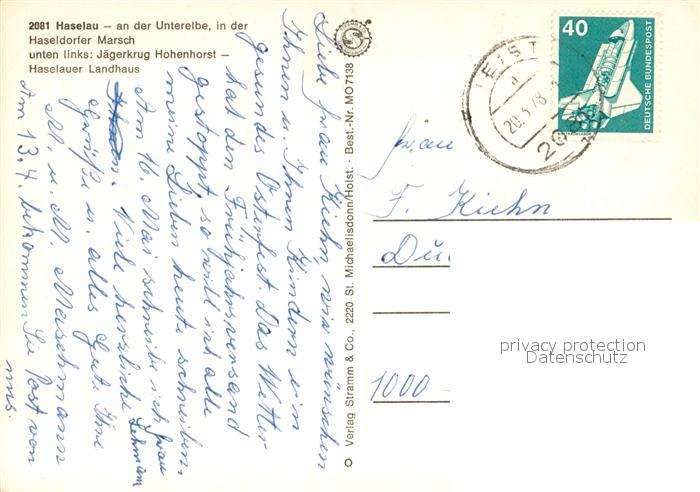 2081 Haselau – an der Unterelbe, in der
Haseldorfer Marsch
unten links: Jägerkrug Hohenhorst –
Haselauer Landhaus
Liebe Frau Kiehn, wir wünschen
Ihnen u. Ihren Kindern ein
gesundes Osterfest. Das Wetter
hat den Frühjahrsversand
gestoppt, so will ich alle
meine Lieben heute schreiben.
Am 16. Mai schreibe ich Frau
Lehmann
Viele herzliche
Grüße u. alles Gute Ihre
M. u. M. Maschmann
Am 13.4. bekommen Sie Post von
uns.
Verlag Stramm & Co., 2220 St. Michaelisdonn/Holst. · Best.-Nr. MO 7138
S
40
DEUTSCHE BUNDESPOST
20.3.78
Frau
F. Kiehn
1000 -
privacy protection
Datenschutz